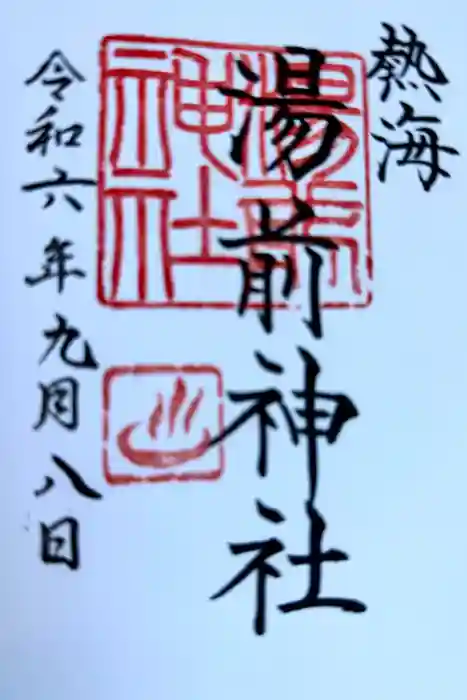 熱海
湯前神社
令和六年九月八日
湯前
神社